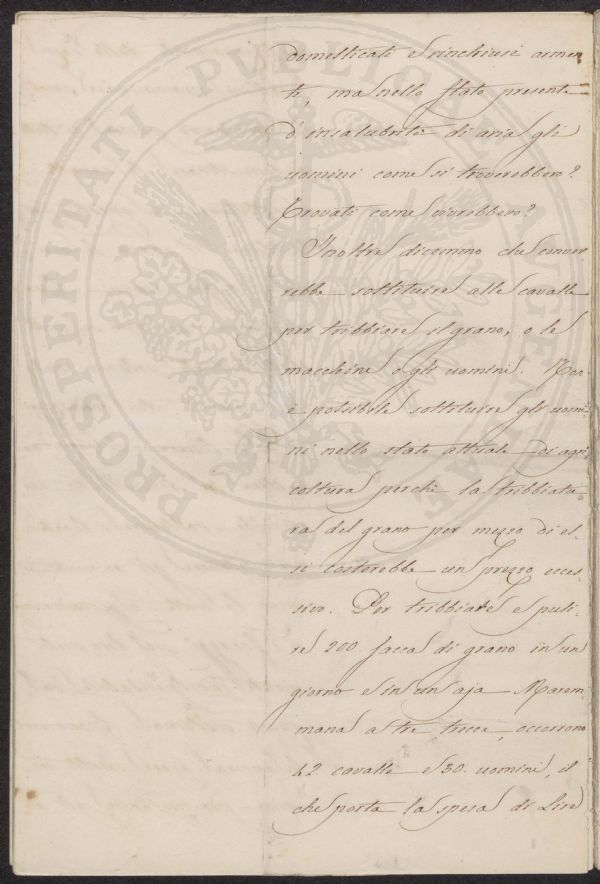 domesticati e rinchiusi armen
ti, ma nello stato presente
d'insalubrità di aria gli
uomini come si troverebbero?
Trovati come vivrebbero?
Inoltre dicemmo che conver
rebbe sostituire alle cavalle
per tribbiare il grano, o le
macchine o gli uomini. Non
è possibile sostituire gli uomi
ni nello stato attuale di agri
coltura perchè la tribbiatu
ra del grano per mezzo di es-
si costerebbe un prezzo ecces
sivo. Per tribbiare e puli-
re 200 sacca di grano in un
giorno e in un aja Marem
mana a tre trecce, occorrono
42. cavalle e 30. uomini, il
che porta la spesa di Lire
PROSPERITATI PUBLICAE AUGENDAE